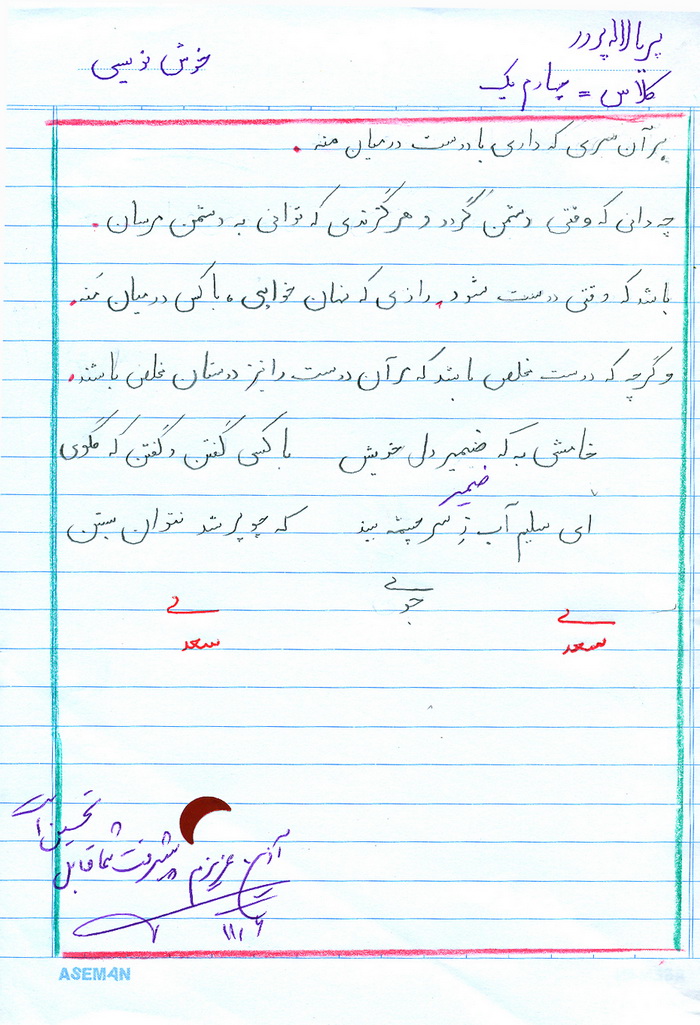 پریا لاله پرور
خوش نویسی
کلاس = چهارم یک
هر آن سری که داری با دوست درمیان منه .
چه دانی که وقتی دشمن گردد و هر گزندی که توانی به دشمن مرسان .
باشد که وقتی دوست شود . رازی که نهان خواهی ، با کس درمیان مَنه .
و گرچه که دوست مخلص باشد که مر آن دوست را نیز دوستان مخلص باشند .
خامشی به که ضمیر دل خویش با کسی گفتن و گفتن که مگوی
ضمیر
ای سلیم آب زِ سرچشمه ببند که چو پر شد نتوان بستن
جوی
سعدی
سعدی
آفرین عزیزم پیشرفت شما قابل
تحسین است
۱۱/۶
ASEMAN